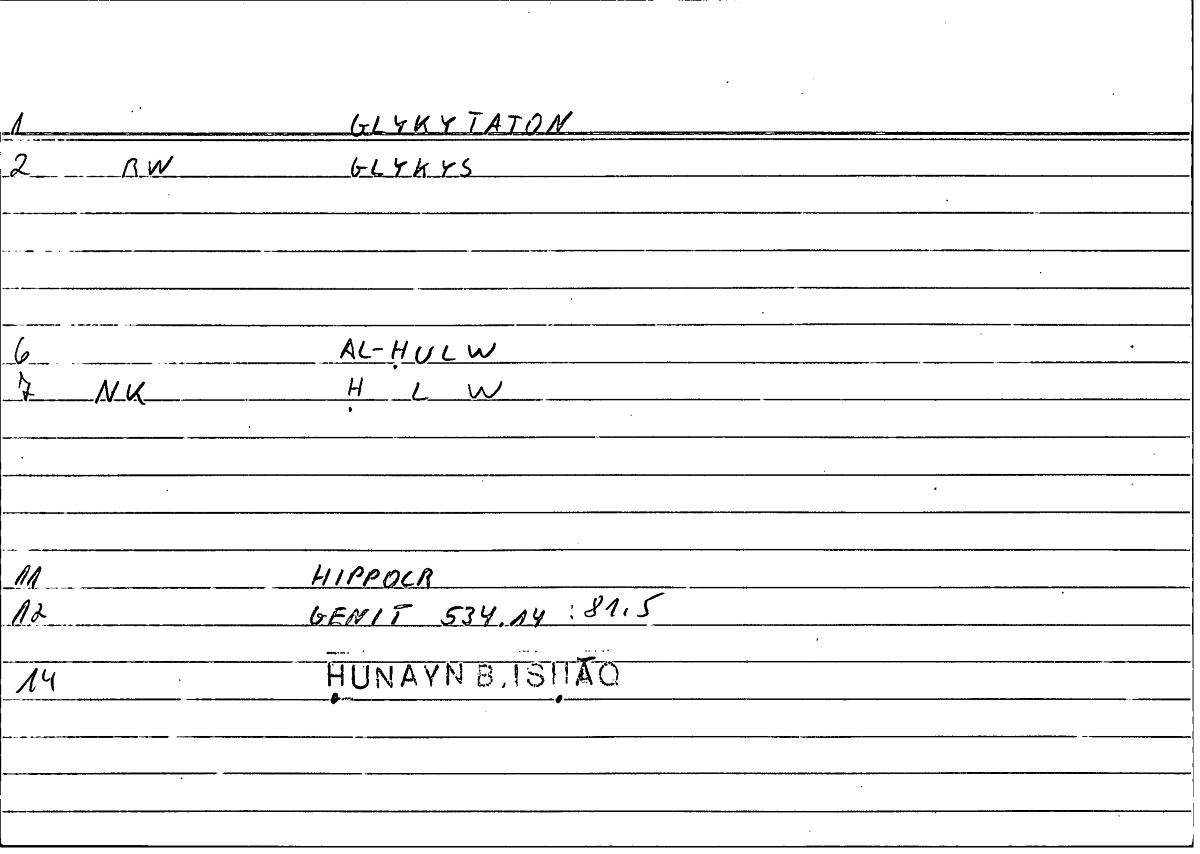 1 GLYKYTATON
2 RW GLYKYS
6 AL-ḤULW
7 NK Ḥ L W
11 HIPPOCR
12 GENIT 534.14 :81.5
14 ḤUNAYN B. ISḤĀQ